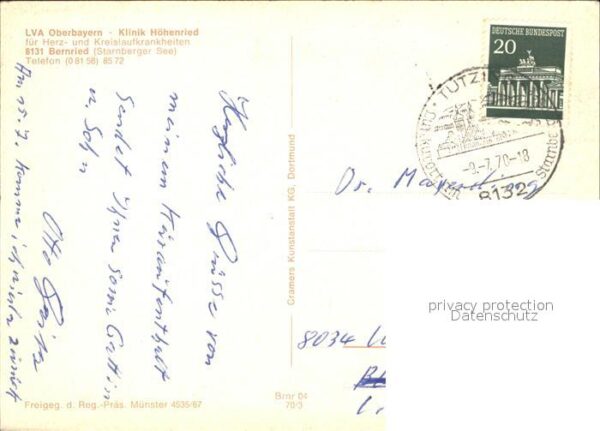 LVA Oberbayern - Klinik Höhenried
für Herz- und Kreislaufkrankheiten
8131 Bernried (Starnberger See)
Telefon (0 81 58) 85 72
Herzliche Grüsse von
meinem Kuraufenthalt
sendet Ihnen sowie Gattin
u. Sohn
Otto
Am 15.7. komme ich wieder zurück
Freigeg. d. Reg.-Präs. Münster 4535/67
Cramers Kunstanstalt KG, Dortmund
Brnr 04
70/3
DEUTSCHE BUNDESPOST
20
TUTZING
-9.-7.70-18
8132
Dr.
8034
privacy protection
Datenschutz